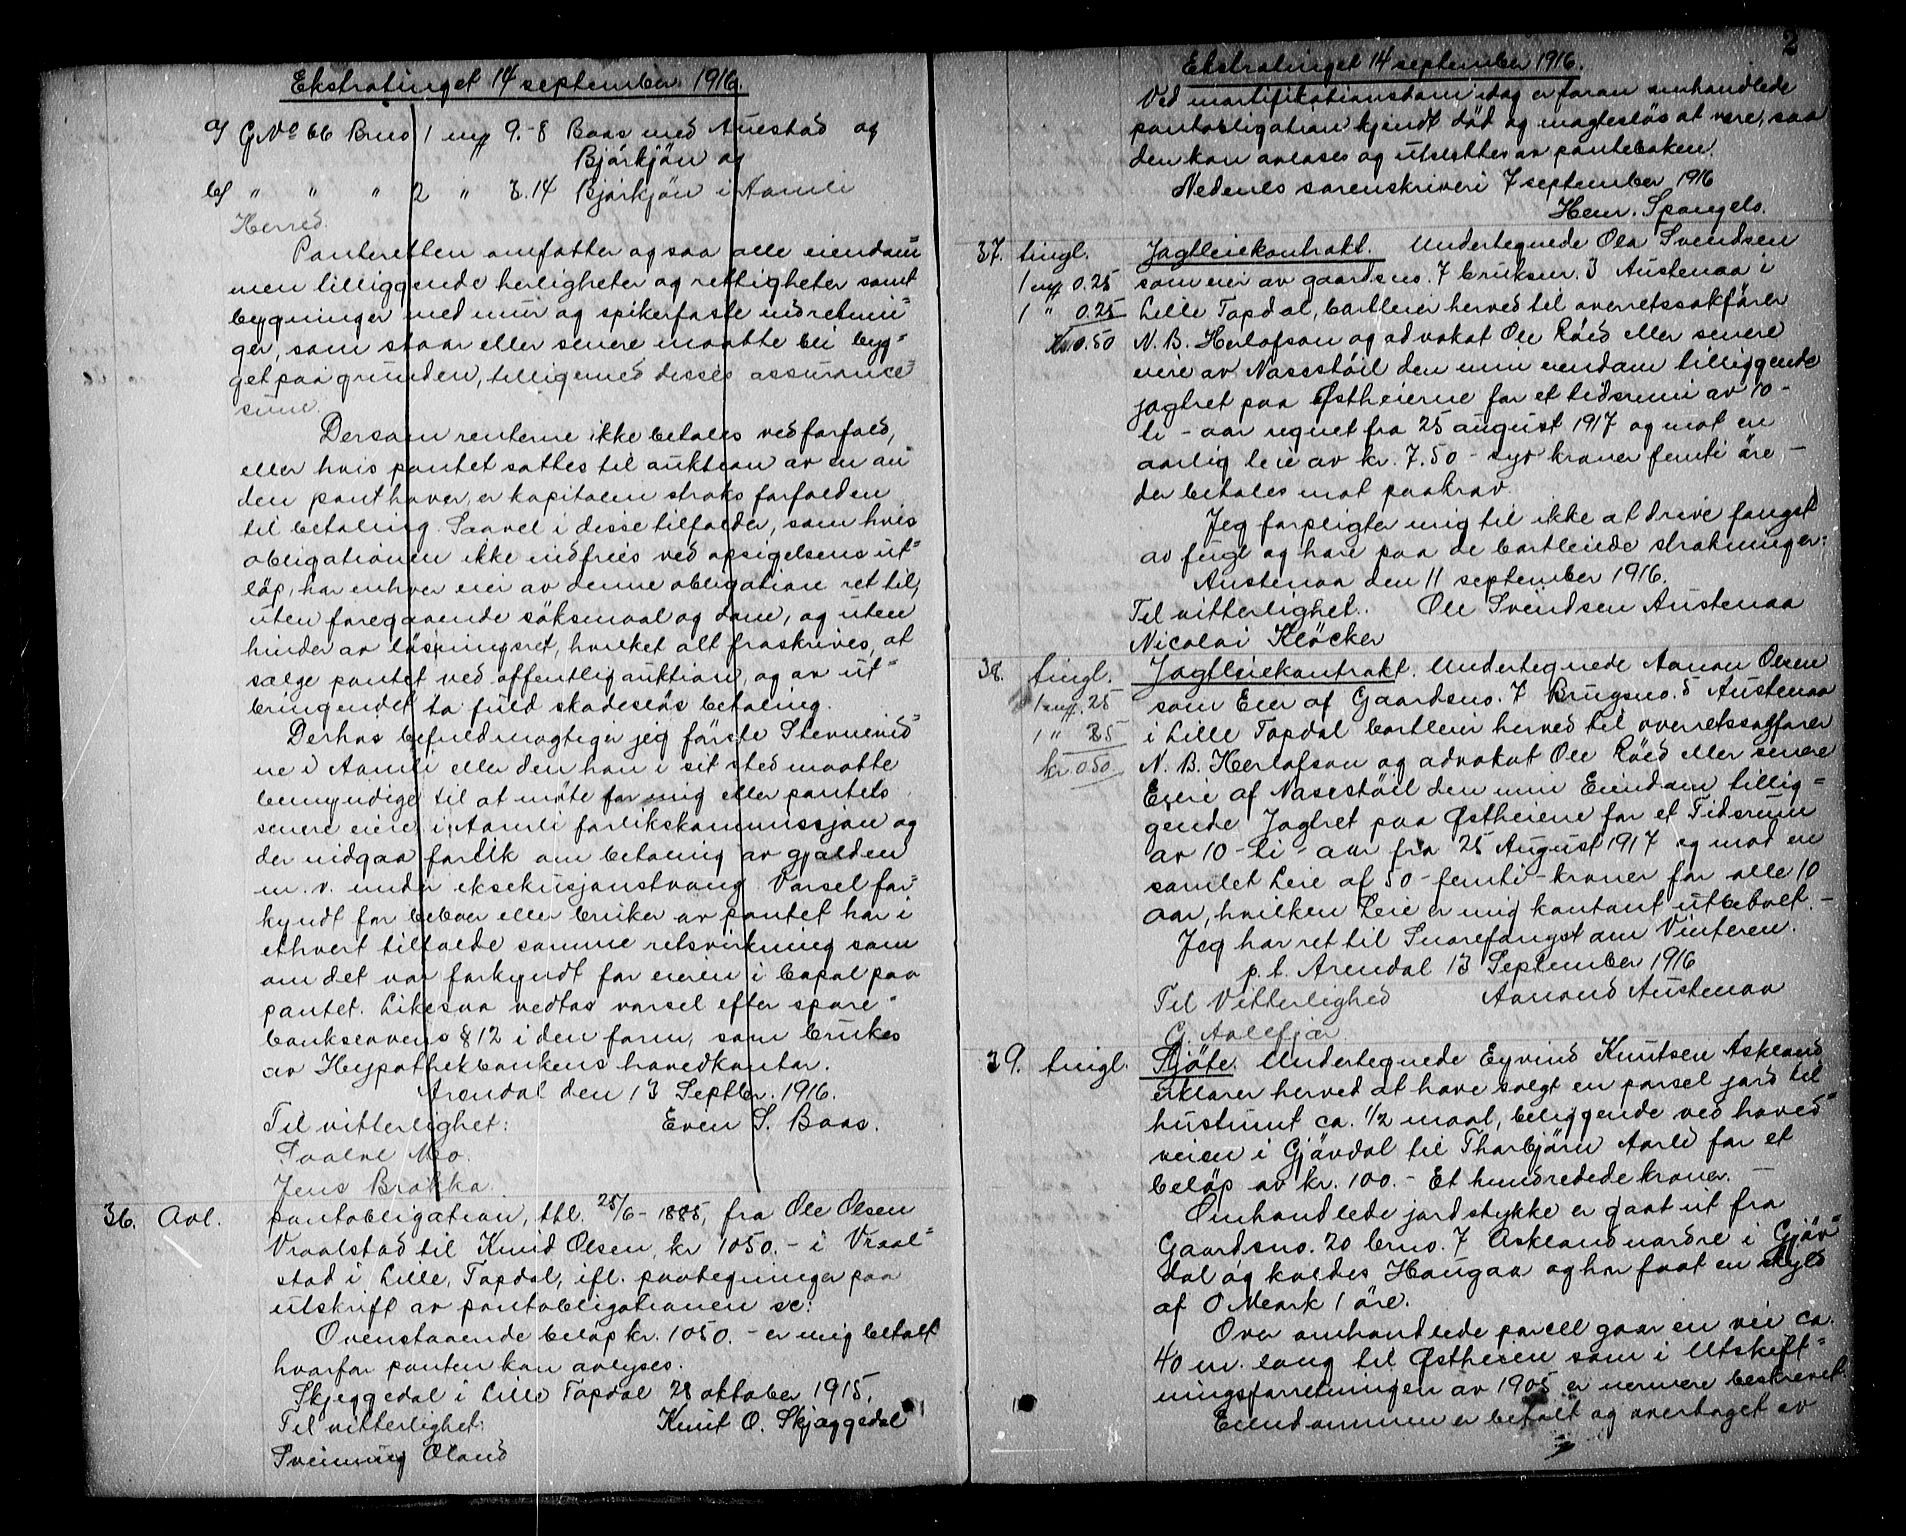 Ekstratinget 14 september 1916.
a/ GNo 66 Brno 1 mf 9.-8 Baas med Auestad og
Bjørkjøn og
b/ " " " 2 " 3.14 Bjørkjøn i Aamli
Herred.
Panteretten omfatter ogsaa alle eiendom=
men tilliggende herligheter og rettigheter samt
bygninger med mur og spikerfaste indretnin=
ger, som staar eller senere maatte bli byg=
get paa grunden, tilligemed disses assurance=
sum.
Dersom renterne ikke betales ved forfald,
eller hvis pantet sættes til auktion av en an=
den panthaver, er kapitalen straks forfalden
til betaling. Saavel i disse tilfælder, som hvis
obligationen ikke indfries ved opsigelsens ut=
løp, har enhver eier av denne obligation ret til,
uten foregaaende søksmaal og dom, og uten
hinder av løsningsret, hvilket alt fraskrives, at
sælge pantet ved offentlig auktion, og av ut=
bringendet ta fuld skadesløs betaling.
Derhos befuldmægtiger jeg første Stevnevid=
ne i Aamli eller den han i sit sted maatte
bemyndige til at møte for mig eller pantets
senere eiere i Aamli forlikskommissjon og
der indgaa forlik om betaling av gjælden
m. v. under eksekusjonstvang. Varsel for=
kyndt for beboer eller bruker av pantet har i
ethvert tilfælde samme retsvirkning som
om det var forkyndt for eieren i bopæl paa
pantet. Likesaa vedtas varsel efter spare=
bankslovens § 12 i den form, som brukes
av Hypothekbankens hovedkontor.
Arendal den 13 Septbr. 1916.
Til vitterlighet: Even S. Baas.
Taale Mo.
Jens Brakka.
36. Avl. pantobligation, tbl. 25/6-1885, fra Ole Olsen
Vraalstad til Knud Olsen, kr 1050.- i Vraal=
stad i Lille Topdal, ifl. paategninger paa
utskrift av pantobligationen se:
Ovenstaaende beløp kr. 1050.- er mig betalt
hvorfor panten kan avlyses.
Skjeggedal i Lille Topdal 28 oktober 1915.
Til vitterlighet: Knut O. Skjæggedal
Sveinung Oland
2
Ekstratinget 14 september 1916.
Ved mortifikationsdom idag er foran omhandlede
pantobligation kjendt død og magtesløs at være, saa
den kan avlæses og utslettes av panteboken.
Nedenes sorenskriveri 7 september 1916
Henr. Spangelo.
37. tingl. Jagtleiekontrakt. Undertegnede Ola Svendsen
1 mf 0.25 som eier av gaardsno. 7 bruksnr. 3 Austenaa i
1 " 0.25 Lille Topdal, bortleier herved til overretssakfører
Kr 0.50 N. B. Herlofson og advokat Ole Røed eller senere
eiere av Nassstøil den min eiendom tilliggende
jagtret paa Østheierne for et tidsrum av 10-
ti - aar regnet fra 25 august 1917 og mot en
aarlig leie av kr. 7.50 - syv kroner femti øre -
der betales mot paakrav.
Jeg forpligter mig til ikke at drive fangst
av fugl og hare paa de bortleiede strækninger.
Austenaa den 11 september 1916.
Til vitterlighet. Ole Svendsen Austenaa
Nicolai Kløcker
38. tingl. Jagtleiekontrakt. Undertegnede Aanon Olsen
1 mf. 25 som Eier af Gaardsno. 7 Brugsno. 5 Austenaa
1 " 25 i Lille Topdal bortleier herved til overretssagfører
kr 0.50 N. B. Herlofson og advokat Ole Røed eller senere
Eiere af Nasestøil den min Eiendom tillig=
gende Jagtret paa Østheiene for et Tidsrum
av 10 - ti - aar fra 25 August 1917 og mod en
samlet Leie af 50 - femti - kroner for alle 10
aar, hvilken Leie er mig kontant utbetalt. -
Jeg har ret til Snarefangst om Vinteren.
p.t. Arendal 13 September 1916
Til Vitterlighed Aanond Austenaa
G. Aalefjær
39. tingl. Skjøte. Undertegnede Eyvind Knutsen Askland
erklærer herved at have solgt en parsel jord til
hustomt ca. 1/2 maal, beliggende ved hoved=
veien i Gjøvdal til Thorbjørn Aarli for et
beløp av kr. 100. - Et hundredede kroner. -
Omhandlede jordstykke er gaat ut fra
Gaardsno. 20 brno. 7 Askland nordre i Gjøv=
dal og kaldes Haugaa og har faat en skyld
af 0 Mark 1 øre.
Over omhandlede parcell gaar en vei ca.
40 m. lang til Østheien som i Utskift=
ningsforretningen av 1905 er nærmere beskrevet.
Eiendommen er betalt og overtaget av